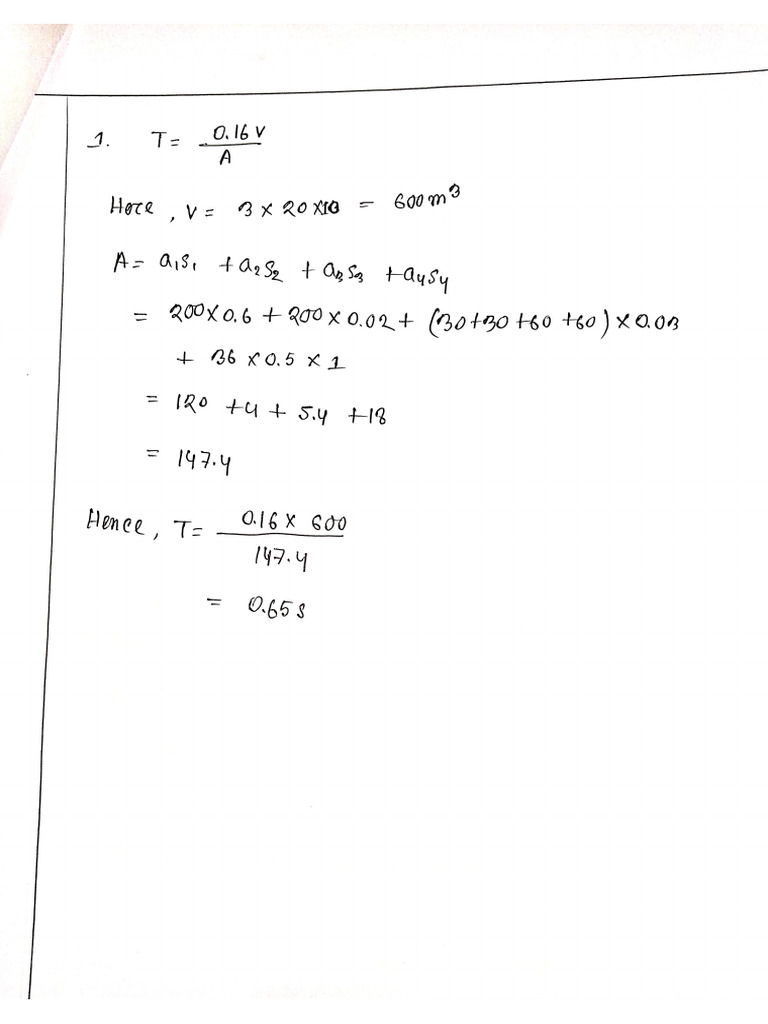 1. T = 0.16 V / A
Here, V = 3 × 20 × 10 = 600 m³
A = a₁s₁ + a₂s₂ + a₃s₃ + a₄s₄
= 200 × 0.6 + 200 × 0.02 + (30+30+60+60) × 0.03
+ 36 × 0.5 × 1
= 120 + 4 + 5.4 + 18
= 147.4
Hence, T = 0.16 × 600 / 147.4
= 0.65 s